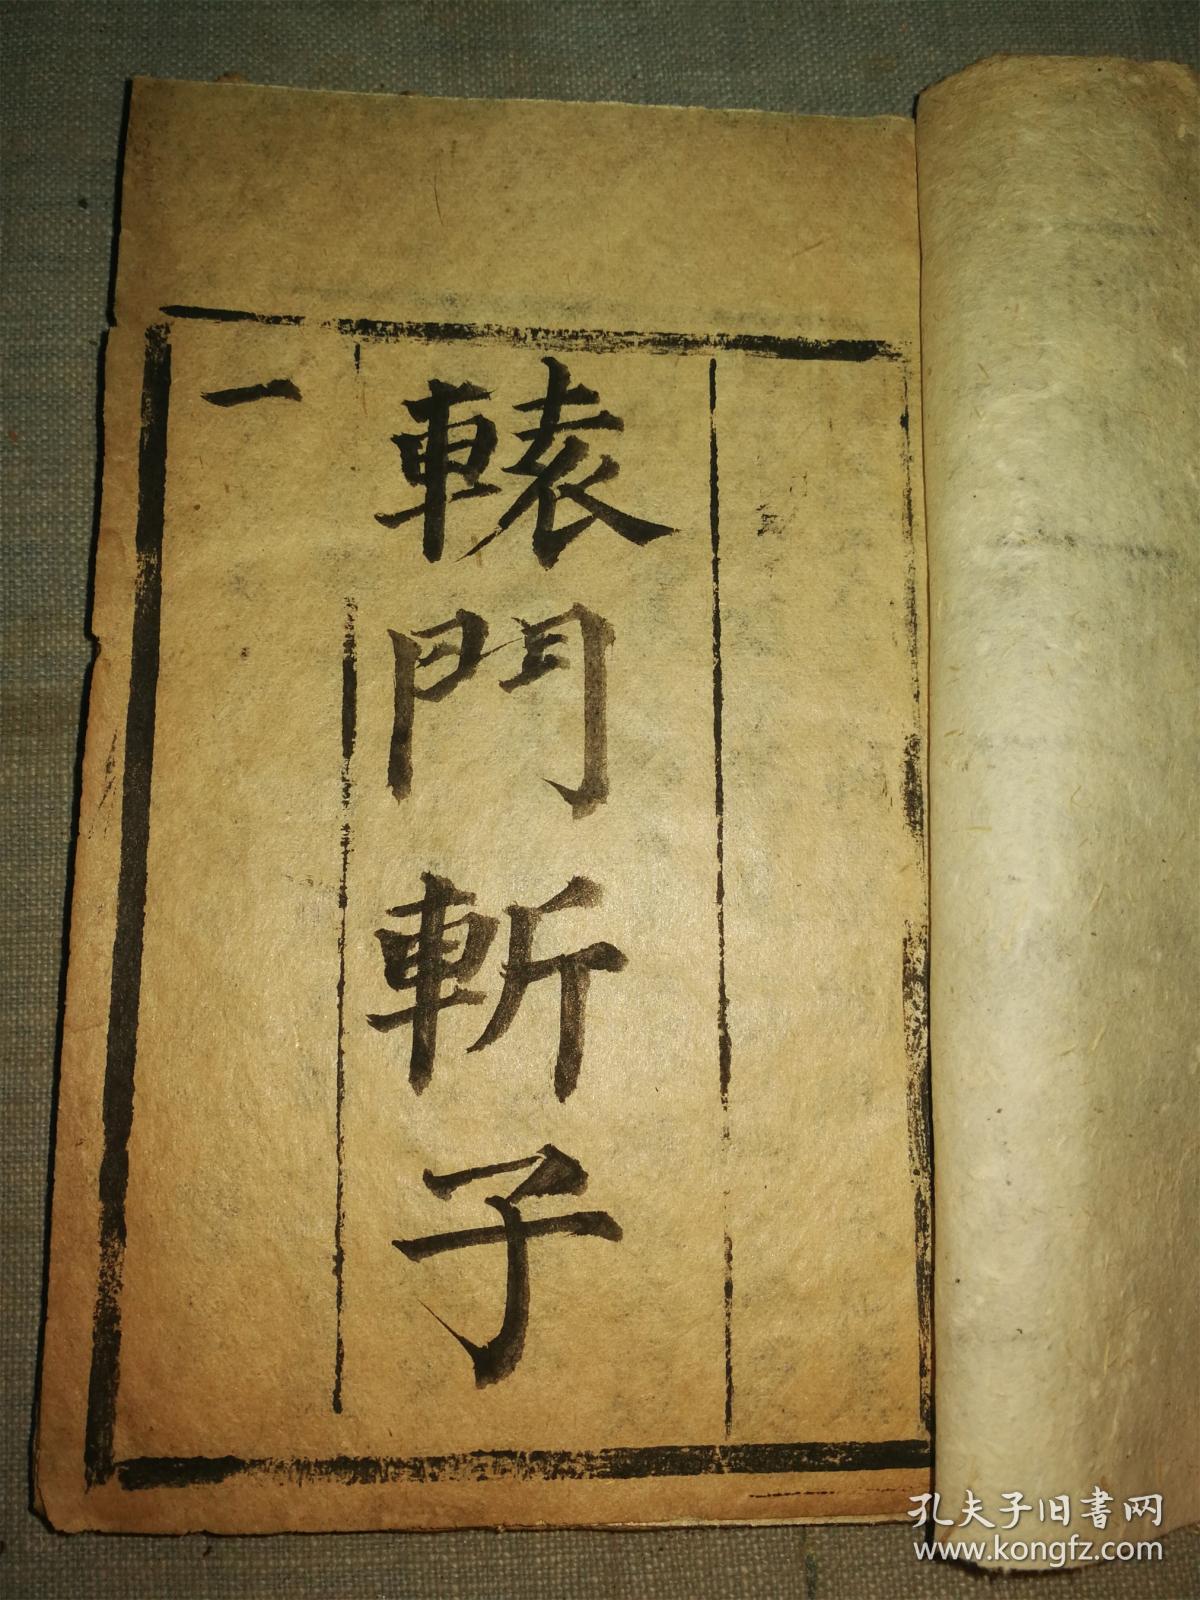 轅門斬子
一
孔夫子旧書网
www.kongfz.com